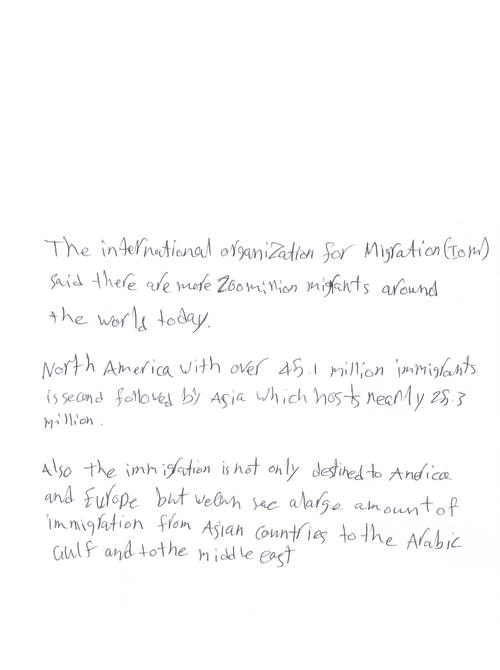 The international organization for Migration (Iom)
said there are more 200 million migrants around
the world today.
North America with over 45.1 million immigrants
is second followed by Asia which hosts nearly 25.3
million.
Also the immigration is not only destined to America
and Europe but we can see a large amount of
immigration from Asian countries to the Arabic
Gulf and to the middle east